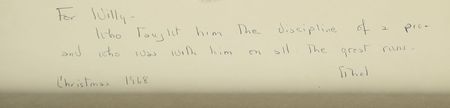 For Willy -
Who Taught him The discipline of a pro -
and who was with him on all The great runs.
Christmas 1968
Ethel